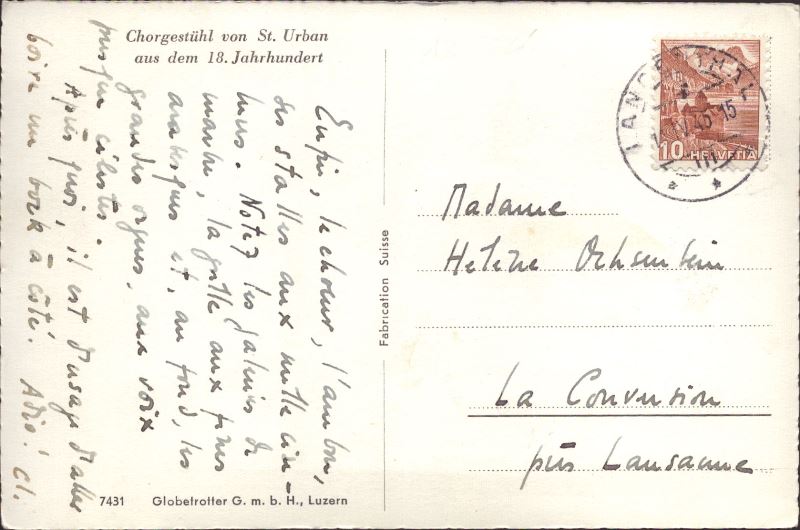 Chorgestühl von St. Urban
aus dem 18. Jahrhundert
Enfin, le choeur, l'ambon,
des stalles aux mille
. Notez les de
marbre, la grille aux fines
arabesques et, au fond, les
grandes orgues, aux voix
presque célestes.
Après quoi, il est d'usage d'aller
boire un bock à côté. Adio! Cl.
7431 Globetrotter G. m. b. H., Luzern
Fabrication Suisse
LANGENTHAL
15
10 HELVETIA
Madame
Helene Ochsenbein
La Conversion
près Lausanne